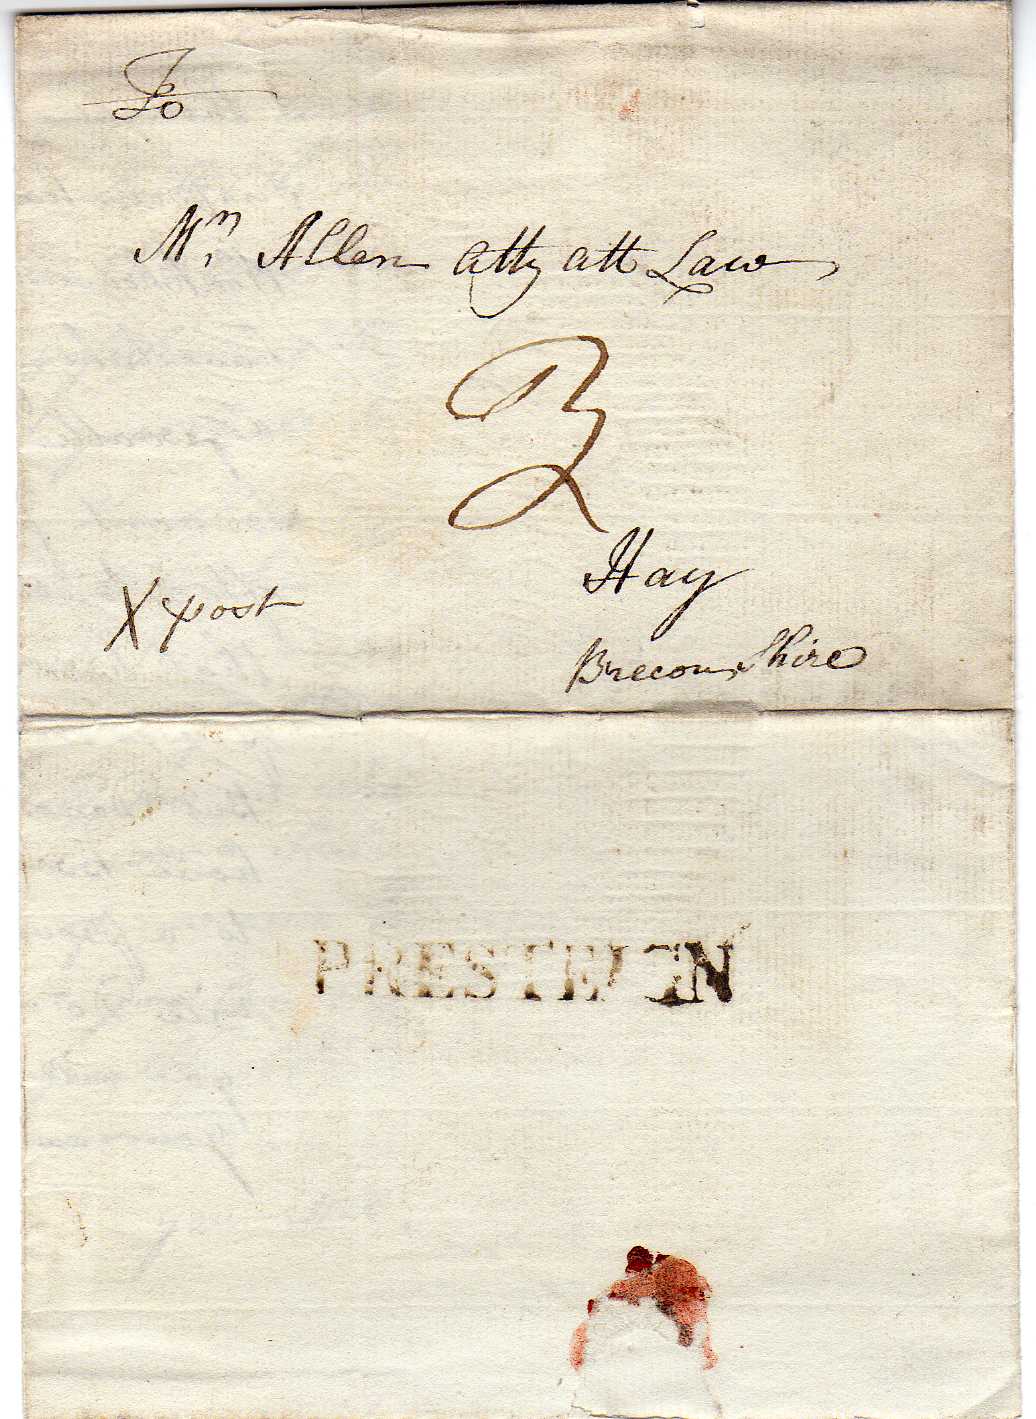 To
Mr. Allen Atty att Law
3
Hay
X post
Brecon Shire
PRESTEIGN